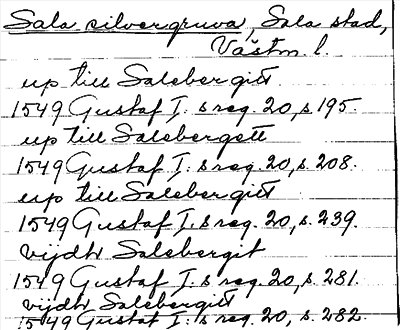 Sala silvergruva, Sala stad,
Västm. l.
up till Saleber gitt
1549 Gustaf I:s reg. 20, s. 195.
up till Salebergett
1549 Gustaf I:s reg. 20, s. 208.
up till Saleber gitt
1549 Gustaf I:s reg. 20, s. 239.
vijdh Salebergit
1549 Gustaf I:s reg. 20, s. 281.
vijdh Salebergitt
1549 Gustaf I:s reg. 20, s. 282.